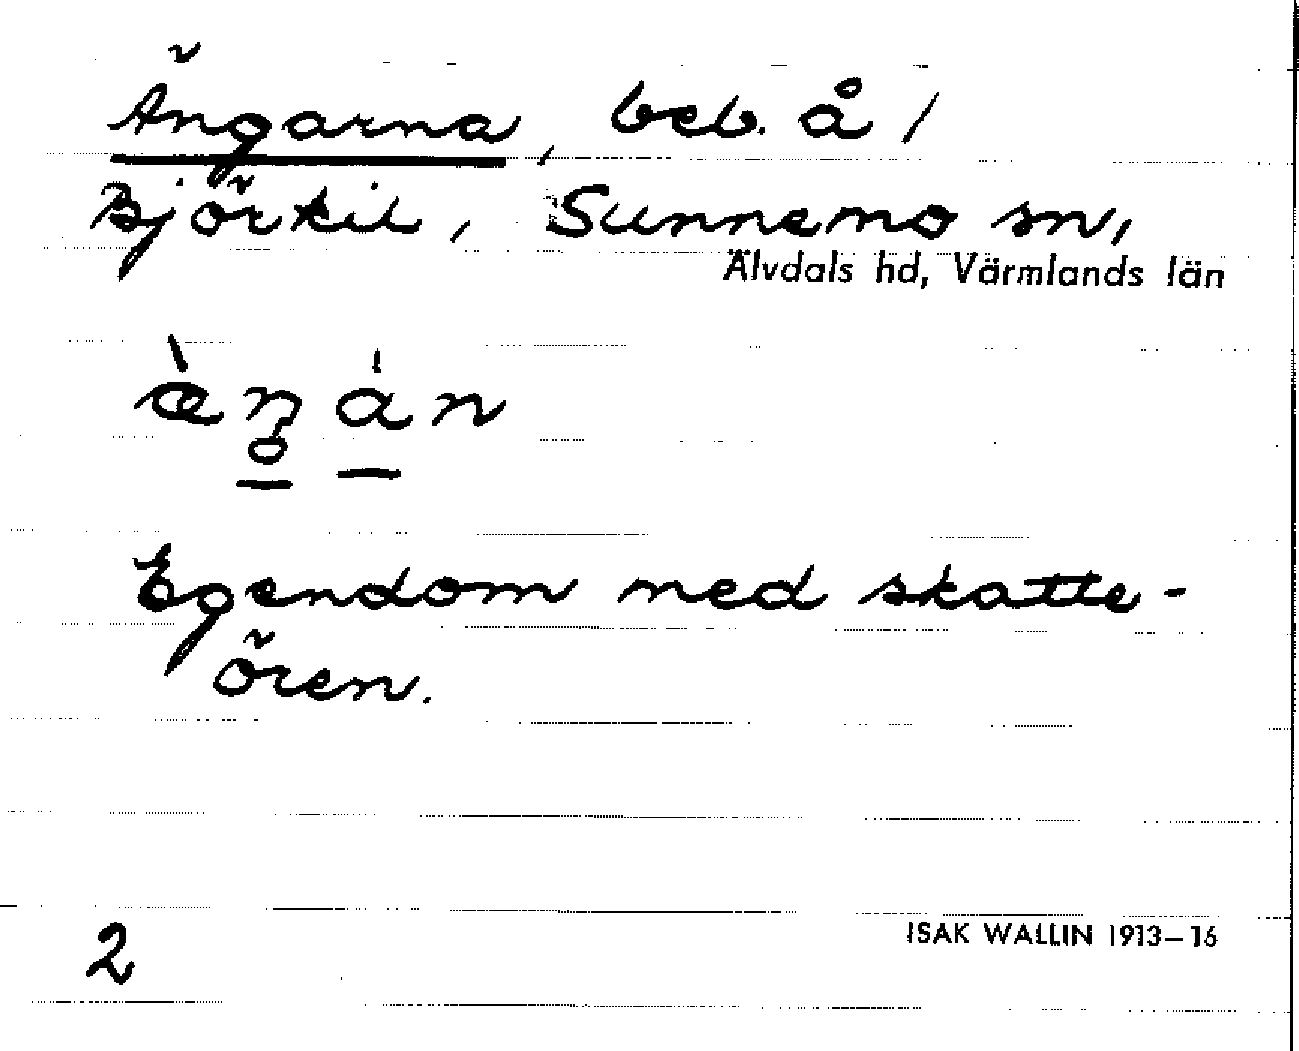 Ängarna, beb. å /
Björkil, Sunnemo sn,
Älvdals hd, Värmlands län
Egendom med skatte-
ören.
2
ISAK WALLIN 1913–16